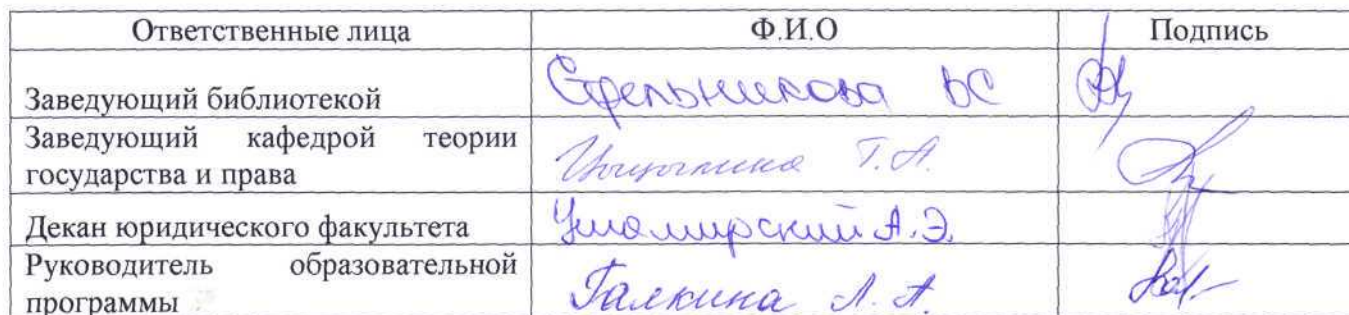 Ответственные лица Ф.И.О Подпись
Заведующий библиотекой Стрельникова ВС
Заведующий кафедрой теории
государства и права Т.А.
Декан юридического факультета А.Э.
Руководитель образовательной
программы Галкина Л.А.